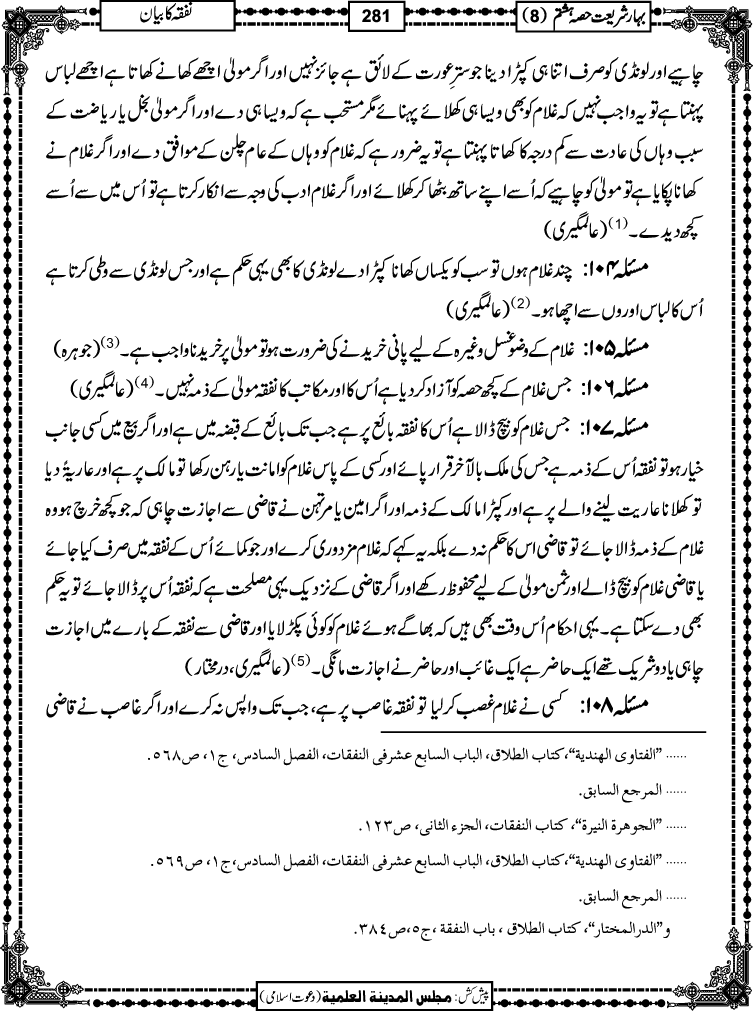 بہار شریعت حصہ ہشتم (8)
281
نفقہ کا بیان
چاہیے اور لونڈی کو صرف اتنا ہی کپڑا دینا جو سترِ عورت کے لائق ہے جائز نہیں اور اگر مولیٰ اچھے کھانے کھاتا ہے اچھے لباس
پہنتا ہے تو یہ واجب نہیں کہ غلام کو بھی ویسا ہی کھلائے پہنائے مگر مستحب ہے کہ ویسا ہی دے اور اگر مولیٰ بخل یا ریاضت کے
سبب وہاں کی عادت سے کم درجہ کا کھاتا پہنتا ہے تو یہ ضرور ہے کہ غلام کو وہاں کے عام چلن کے موافق دے اور اگر غلام نے
کھانا پکایا ہے تو مولیٰ کو چاہیے کہ اُسے اپنے ساتھ بٹھا کر کھلائے اور اگر غلام ادب کی وجہ سے انکار کرتا ہے تو اُس میں سے اُسے
کچھ دیدے۔(1) (عالمگیری)
مسئلہ ۱۰۴: چند غلام ہوں تو سب کو یکساں کھانا کپڑا دے لونڈی کا بھی یہی حکم ہے اور جس لونڈی سے وطی کرتا ہے
اُس کا لباس اوروں سے اچھا ہو۔(2) (عالمگیری)
مسئلہ ۱۰۵: غلام کے وضو غسل وغیرہ کے لیے پانی خریدنے کی ضرورت ہو تو مولیٰ پر خریدنا واجب ہے۔(3) (جوہرہ)
مسئلہ ۱۰۶: جس غلام کے کچھ حصہ کو آزاد کر دیا ہے اُس کا اور مکاتب کا نفقہ مولیٰ کے ذمہ نہیں۔(4) (عالمگیری)
مسئلہ ۱۰۷: جس غلام کو بیچ ڈالا ہے اُس کا نفقہ بائع پر ہے جب تک بائع کے قبضہ میں ہے اور اگر بیع میں کسی جانب
خیار ہو تو نفقہ اُس کے ذمہ ہے جس کی ملک بالآخر قرار پائے اور کسی کے پاس غلام کو امانت یا رہن رکھا تو مالک پر ہے اور عاریۃً دیا
تو کھلانا عاریت لینے والے پر ہے اور کپڑا مالک کے ذمہ اور اگر امین یا مرتہن نے قاضی سے اجازت چاہی کہ جو کچھ خرچ ہو وہ
غلام کے ذمہ ڈالا جائے تو قاضی اس کا حکم نہ دے بلکہ یہ کہے کہ غلام مزدوری کرے اور جو کمائے اُس کے نفقہ میں صرف کیا جائے
یا قاضی غلام کو بیچ ڈالے اور ثمن مولیٰ کے لیے محفوظ رکھے اور اگر قاضی کے نزدیک یہی مصلحت ہے کہ نفقہ اُس پر ڈالا جائے تو یہ حکم
بھی دے سکتا ہے۔ یہی احکام اُس وقت بھی ہیں کہ بھاگے ہوئے غلام کو کوئی پکڑ لایا اور قاضی سے نفقہ کے بارے میں اجازت
چاہی یا دو شریک تھے ایک حاضر ہے ایک غائب اور حاضر نے اجازت مانگی۔(5) (عالمگیری، درمختار)
مسئلہ ۱۰۸: کسی نے غلام غصب کر لیا تو نفقہ غاصب پر ہے، جب تک واپس نہ کرے اور اگر غاصب نے قاضی
...... ”الفتاوی الھندیة“، کتاب الطلاق، الباب السابع عشر فی النفقات، الفصل السادس، ج۱، ص۵٦۸.
...... المرجع السابق.
...... ”الجوھرة النیرة“، کتاب النفقات، الجزء الثانی، ص۱۲۳.
...... ”الفتاوی الھندیة“، کتاب الطلاق، الباب السابع عشر فی النفقات، الفصل السادس، ج۱، ص۵٦۹.
...... المرجع السابق.
و”الدرالمختار“، کتاب الطلاق، باب النفقة، ج۵، ص۳۸٤.
پیش کش: مجلس المدینة العلمیة (دعوت اسلامی)